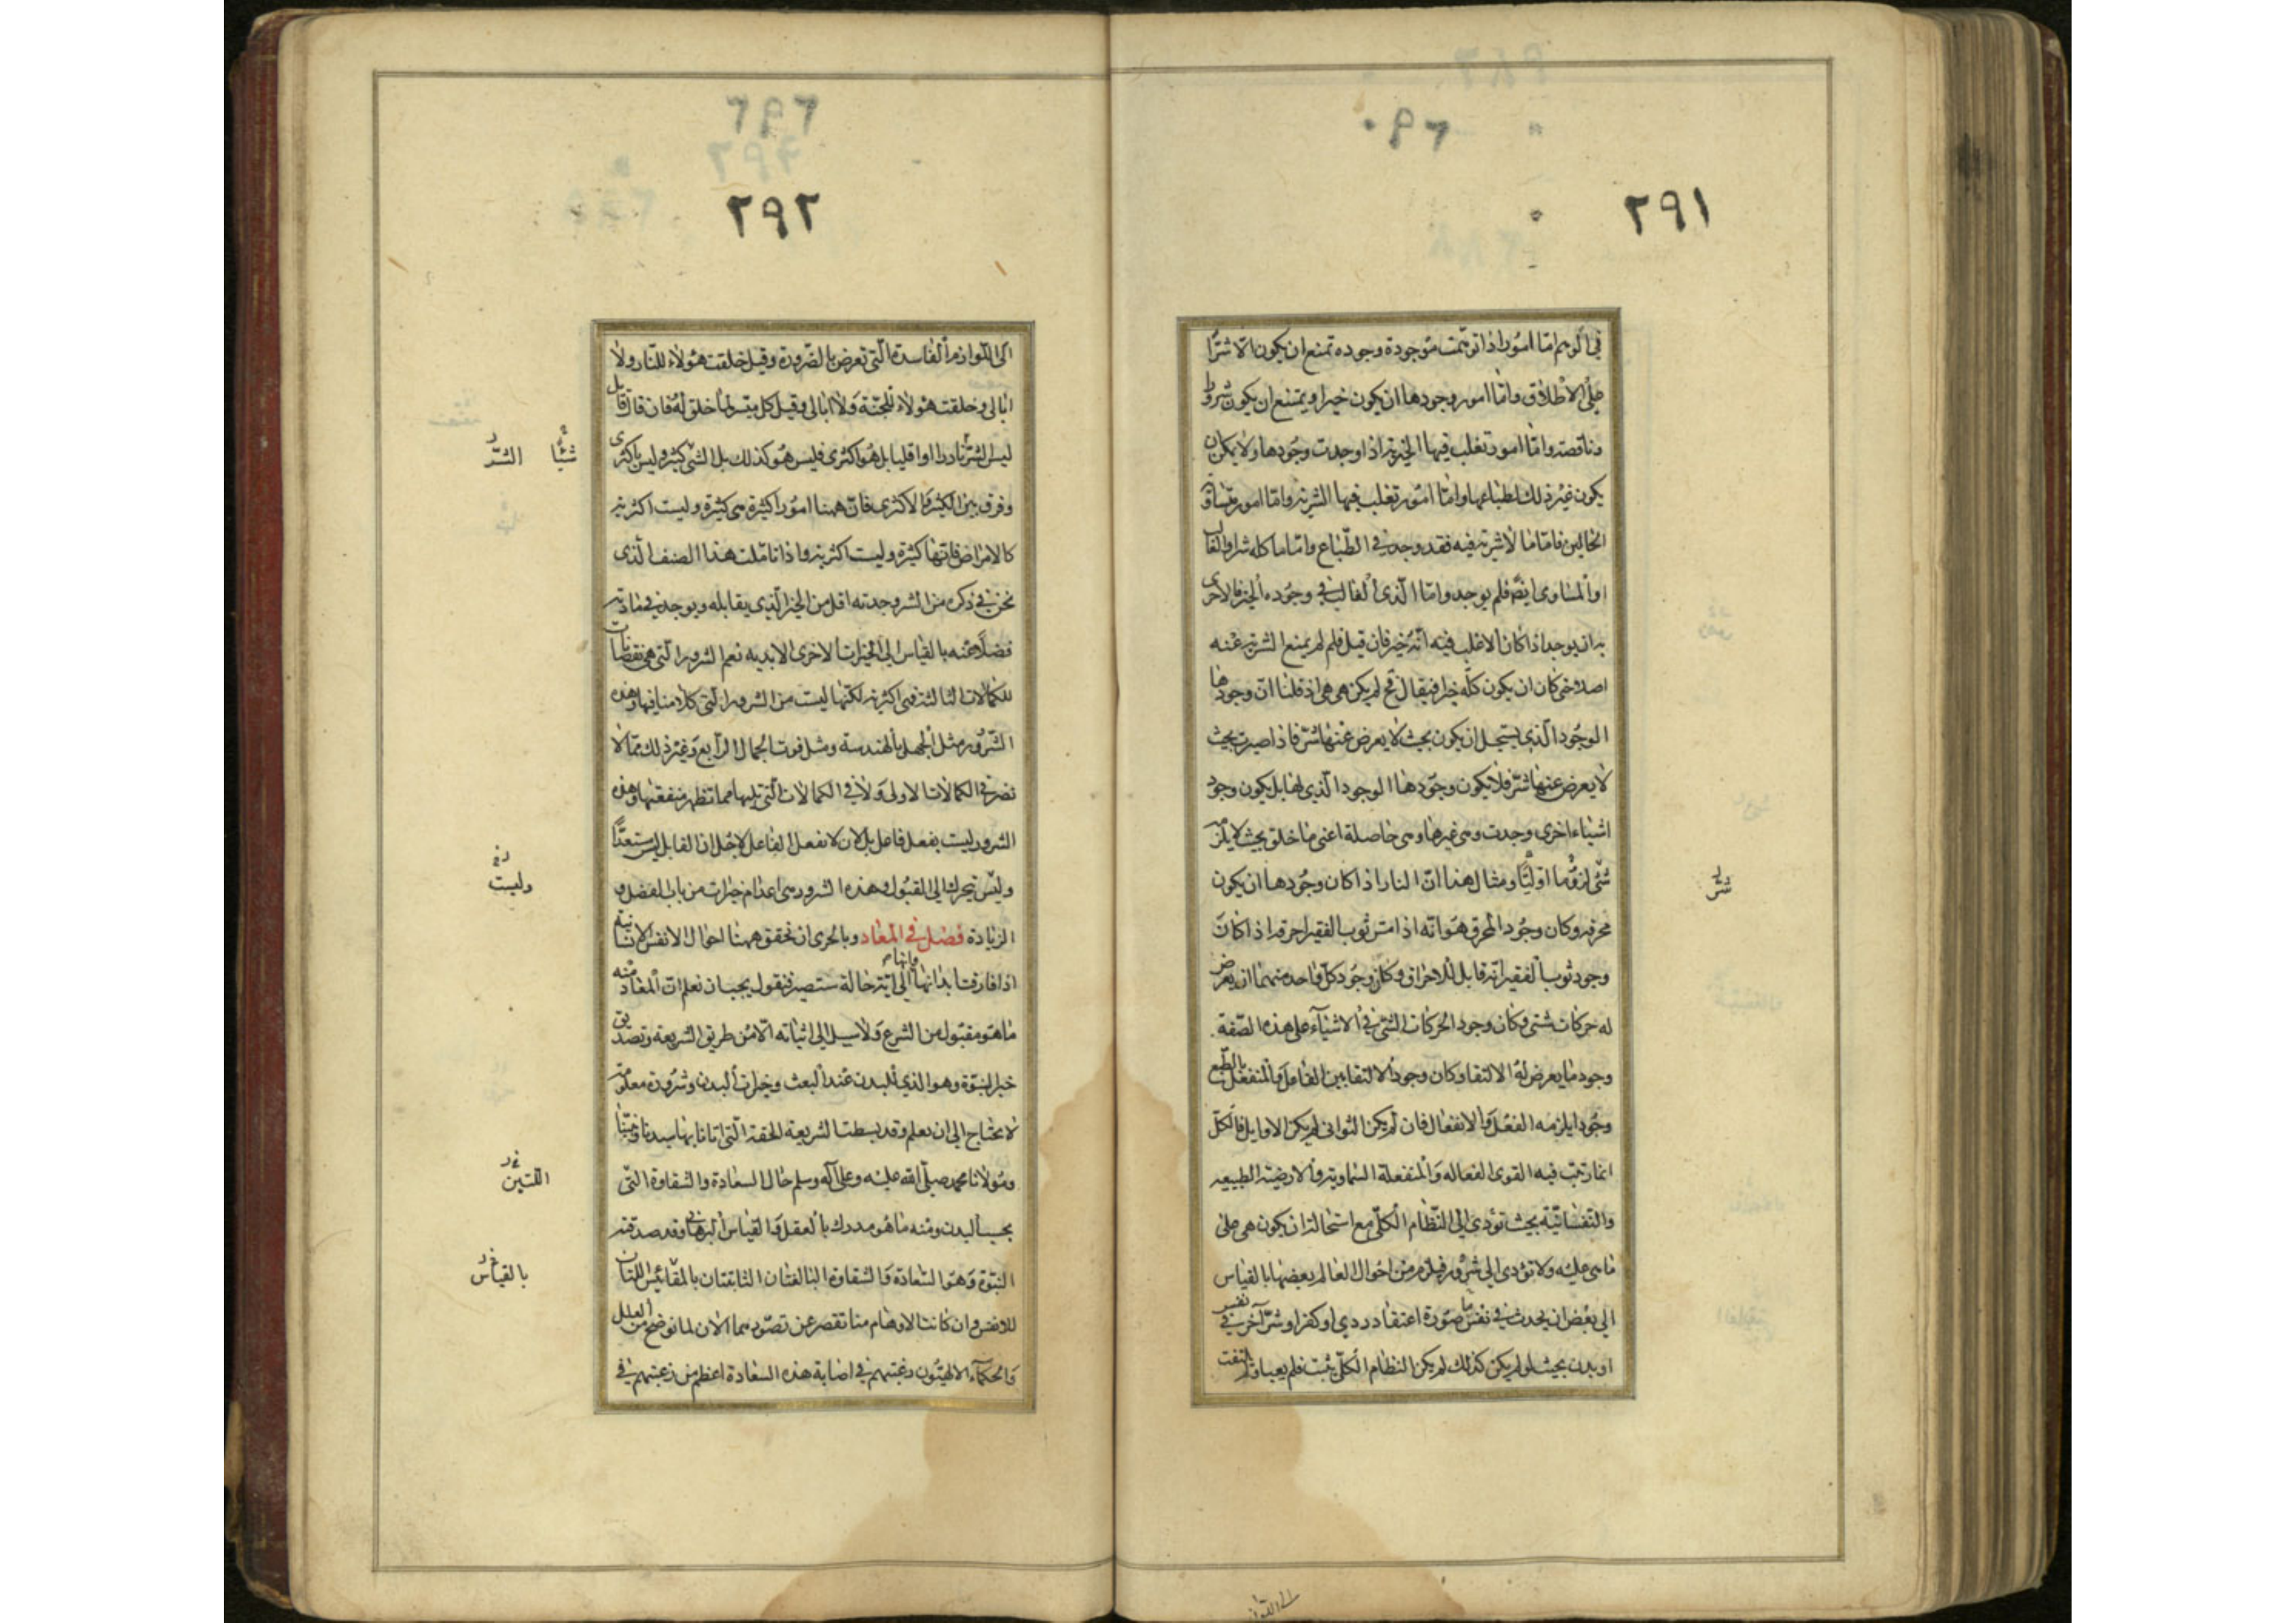 ٢٩١
في الوهم اما امورا اذا توهمت موجودة وجوده تمنع ان يكون الا شرا
على الاطلاق واما امور وجودها ان يكون خيرا ويمتنع ان يكون شرورا
وناقصة واما امور تغلب فيها الخيرية اذا وجدت وجودها ولا يمكن ان
يكون غير ذلك لطباعها واما امور تغلب فيها الشرية واما امور متساوية
الحالين فاما ما لا شرية فيه فقد وجد في الطباع واما ما كله شر او الغالب
او المساوى ايضا فلم يوجد واما الذى الغالب في وجوده الخير فالاحرى
به ان يوجد اذا كان الاغلب فيه انه خير فان قيل فلم لم يمنع الشرية عنه
اصلا حتى كان ان يكون كله خيرا فيقال فح لم يكن هي هي اذ قلنا ان وجودها
الوجود الذي يستحيل ان يكون بحيث لا يعرض عنها شر فاذا صيرت بحيث
لا يعرض عنها شر فلا يكون وجودها الوجود الذي لها بل يكون وجود
اشياء اخرى وجدت وهي غيرها وهي حاصلة اعنى ما خلق بحيث لا يلزمه
شئ لزوما اوليا ومثال هذا ان النار اذا كان وجودها ان يكون
شر
محرقة وكان وجود المحرق هو انه اذا مس ثوب الفقير احرقه اذ اكان
وجود ثوب الفقير انه قابل للاحراق وكان وجود كل واحد منهما ان يعرض
له حركات شتى وكان وجود الحركات الشتى في الاشياء على هذه الصفة
وجود ما يعرض له الالتقا وكان وجود الالتقا بين الفاعل والمنفعل بالطبع
وجودا يلزمه الفعل والانفعال فان لم يكن الثوانى لم يكن الاوايل فالكل
انما رتبت فيه القوى الفعاله والمنفعلة السماوية والارضية الطبيعيه
والنفسانية بحيث تؤدي الى النظام الكلى مع استحالة ان يكون هي على
ما هي عليه ولا تؤدى الى شرور فيلزم من احوال العالم بعضها بالقياس
الى بعض ان يحدث في نفس ما صورة اعتقاد ردي او كفر او شر آخر في نفس
او بدن بحيث لو لم يكن كذلك لم يكن النظام الكلى يثبت فلم يعبا ولم يلتفت
٢٩٢
الى اللوازم الفاسدة التى تعرض بالضرورة وقيل خلقت هؤلاء للنار ولا
ابالى وخلقت هؤلاء للجنة ولا ابالى وقيل كل ميسر لما خلق له فان قال قايل
ليس الشر نادرا او اقليا بل هو اكثرى فليس هو كذلك بل الشئ كثير وليس باكثرى
شيئا الشر
وفرق بين الكثير والاكثرى فان ههنا امورا كثيرة هى كثيرة وليست اكثرية
كالامراض فانها كثيرة وليست اكثرية واذا تاملت هذا الصنف الذى
نحن في ذكره من الشر وجدته اقل من الخير الذي يقابله ويوجد في مادته
فضلا عنه بالقياس الى الخيرات الاخرى الابديه نعم الشرور التى هى نقصانات
للكمالات الثالثة فهى اكثرية لكنها ليست من الشرور التى كلامنا فيها وهذه
الشرور مثل الجهل بالهندسة ومثل فوت الجمال الرابع وغير ذلك مما لا
نضر في الكمالات الاولى ولا في الكمالات التى تليها مما تظهر منفعتها وهذه
الشرور ليست بفعل فاعل بل لان لا نفعل الفاعل لاجل ان القابل ليس مستعدا
وليس تتحرك الى القبول وهذه الشرور هى اعدام خيرات من باب الفضل و
وليست
الزيادة فصل في المعاد وبالحرى ان نحقق ههنا احوال الانفس الانسانية
اذا فارقت ابدانها وانها الى اية حالة ستصير فنقول يجب ان نعلم ان المعاد منه
ما هو مقبول من الشرع ولا سبيل الى اثباته الا من طريق الشريعة وتصديق
خبر النبوة وهو الذي للبدن عند البعث وخيرات البدن وشروره معلومة
لا يحتاج الى ان يعلم وقد بسطت الشريعة الحقة التى اتانا بها سيدنا ونبينا
ومولانا محمد صلى الله عليه وعلى آله وسلم حال السعادة والشقاوة التى
اللتين
بحسب البدن ومنه ما هو مدرك بالعقل والقياس البرهانى وقد صدقته
النبوة وهو السعادة والشقاوة البالغتان الثابتتان بالمقائيس اللتان
بالقياس
للانفس وان كانت الاوهام منا تقصر عن تصورهما الان لما نوضح من العلل
والحكماء الالهيون رغبتهم في اصابة هذه السعادة اعظم من رغبتهم في